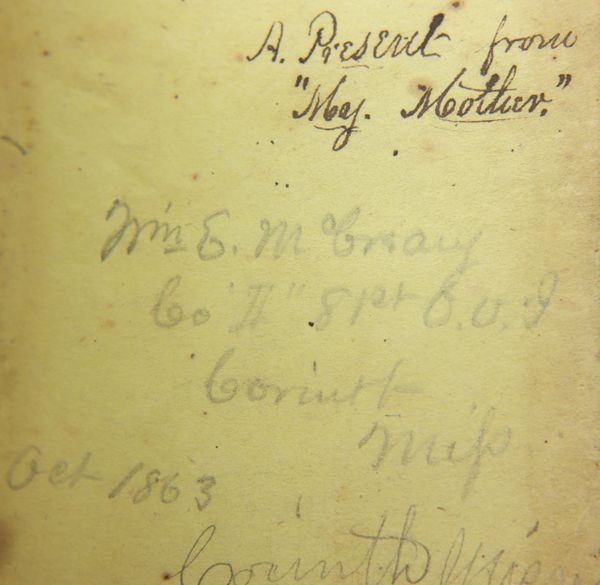 A. Present from
"My. Mother."
Wm E. McCreary
Co "H" 81st O.V.I
Corinth
Miss
Oct 1863
Corinth Miss